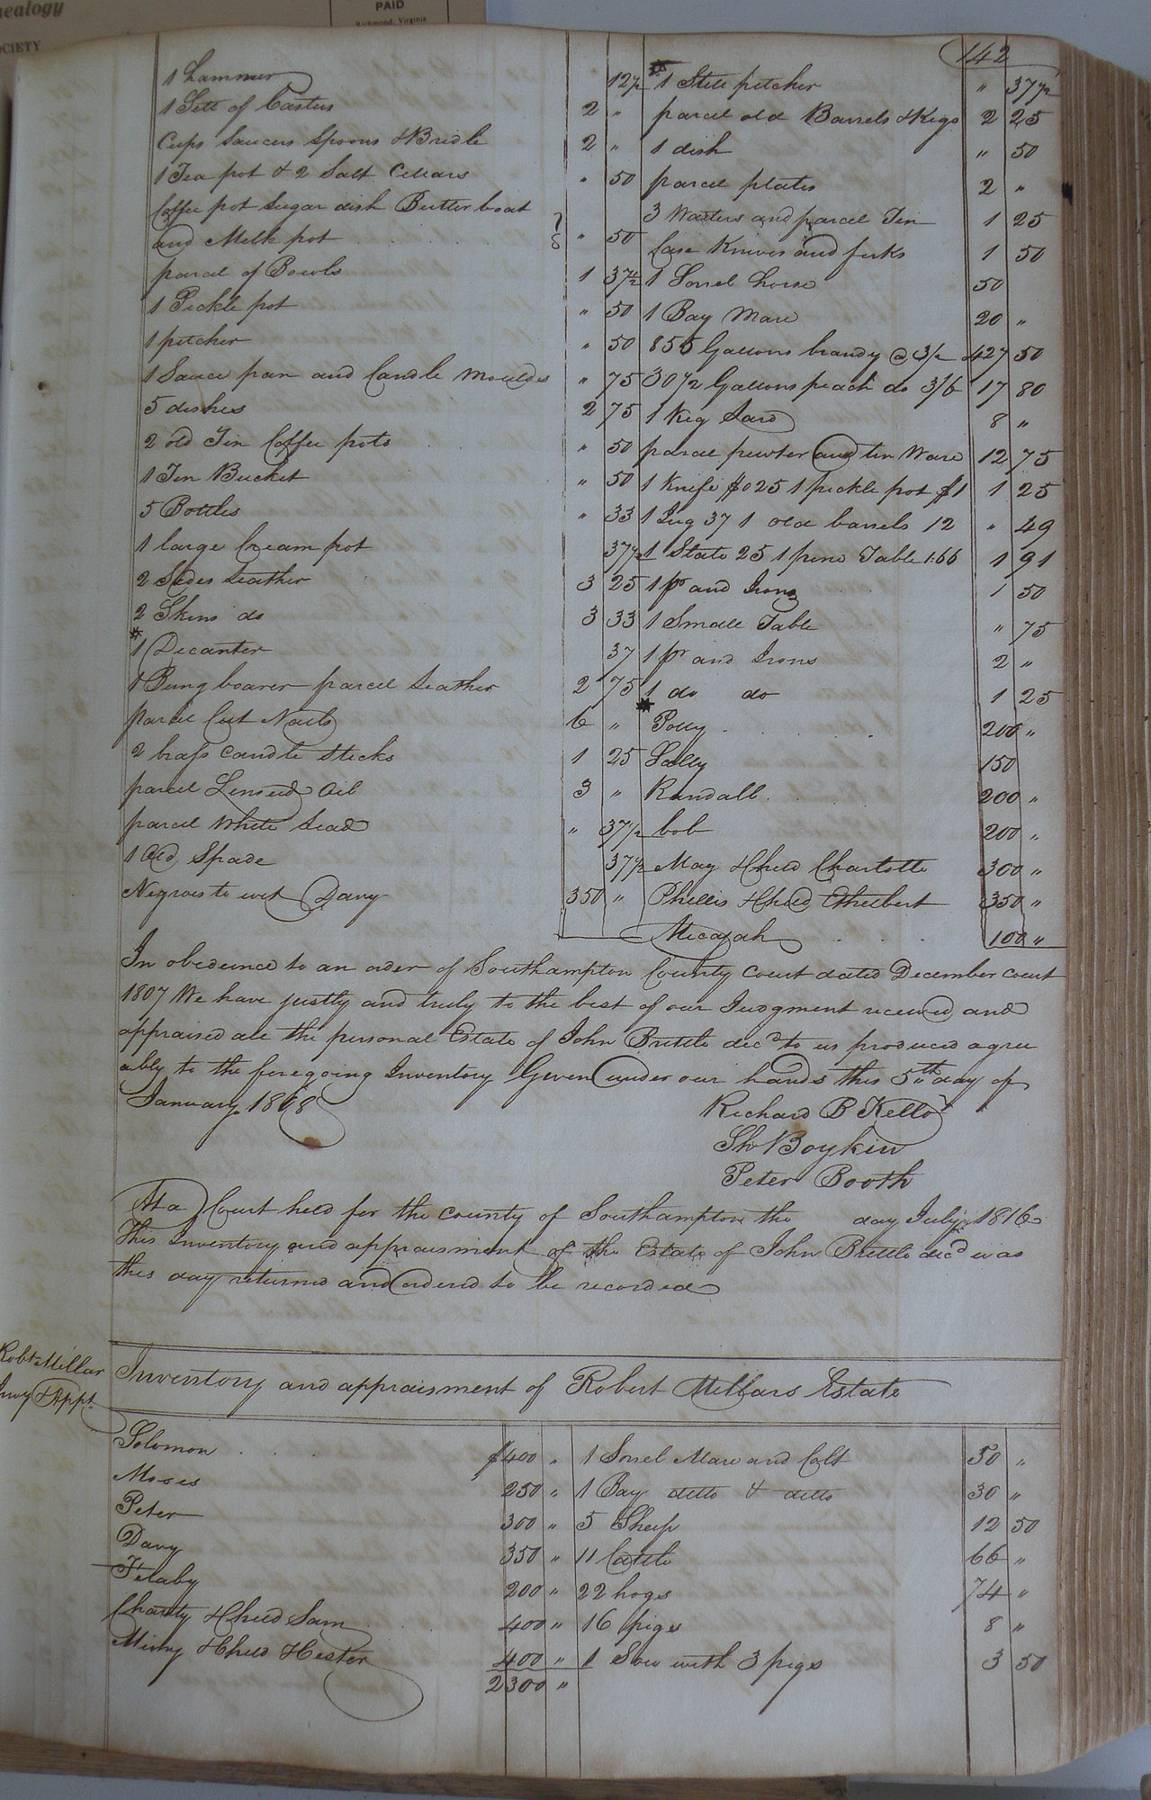 nealogy
OCIETY
PAID
Richmond, Virginia
142
1 Hammer 12½
1 Sett of Casters 2 "
Cups Saucers Spoons & Bridle 2 "
1 Tea pot & 2 Salt Cellars " 50
Coffee pot Sugar dish Butter boat
and Melk pot " 50
parcel of Bowls 1 37½
1 Pickle pot " 50
1 pitcher " 50
1 Sauce pan and Candle Moulds " 75
5 dishes 2 75
2 old Tin Coffee pots " 50
1 Tin Bucket " 50
5 Bottles " 33
1 large Cream pot 37½
2 Sides Leather 3 25
2 Skins do 3 33
1 Decanter 37
1 Bung boarer parcel Leather 2 75
parcel Cut Nails 6 "
2 brass candle sticks 1 25
parcel Linseed Oil 3 "
parcel White Lead " 37½
1 Old Spade 37½
Negroes to wit Davy 350 "
1 Stile pitcher " 37½
parcel old Barrels & Kegs 2 25
1 dish " 50
parcel plates 2 "
3 Waiters and parcel Tin 1 25
Case Knives and forks 1 50
1 Sorrel horse 50
1 Bay Mare 20 "
855 Gallons brandy @ 3/- 427 50
30½ Gallons peach do 3/6 17 80
1 Keg Lard 8 "
parcel pewter and tin Ware 12 75
1 Knife $0 25 1 pickle pot $1 1 25
1 Jug 37 1 old barrels 12 " 49
1 State 25 1 pine Table 1.66 1 91
1 pr and Irons 1 50
1 Small Table " 75
1 pr and Irons 2 "
1 do do 1 25
Polly 200 "
Salley 150
Randall 200 "
bob 200 "
May & Child Charlotte 300 "
Phillis & Child Ethelbert 350 "
Micajah 100 "
In obedience to an order of Southampton County Court dated December court
1807 We have justly and truly to the best of our Judgment received and
appraised all the personal Estate of John Brittle decd to us produced agree
ably to the foregoing Inventory Given under our hands this 5th day of
January 1808
Richard B Kello
Sh Boykin
Peter Booth
At a Court held for the county of Southampton the day July 1816
This Inventory and appraisment of the Estate of John Brittle decd was
this day returned and ordered to be recorded
Robt Millar
Invy & Appt
Inventory and appraisment of Robert Millars Estate
Solomon $400 "
Moses 250 "
Peter 300 "
Davy 350 "
Filaby 200 "
Charity & Child Sam 400 "
Mimy & Child Hester 400 "
2300 "
1 Sorrel Mare and Colt 50 "
1 Bay ditto & ditto 30 "
5 Sheep 12 50
11 Cattle 66 "
22 hogs 74 "
16 pigs 8 "
1 Sow with 3 pigs 3 50